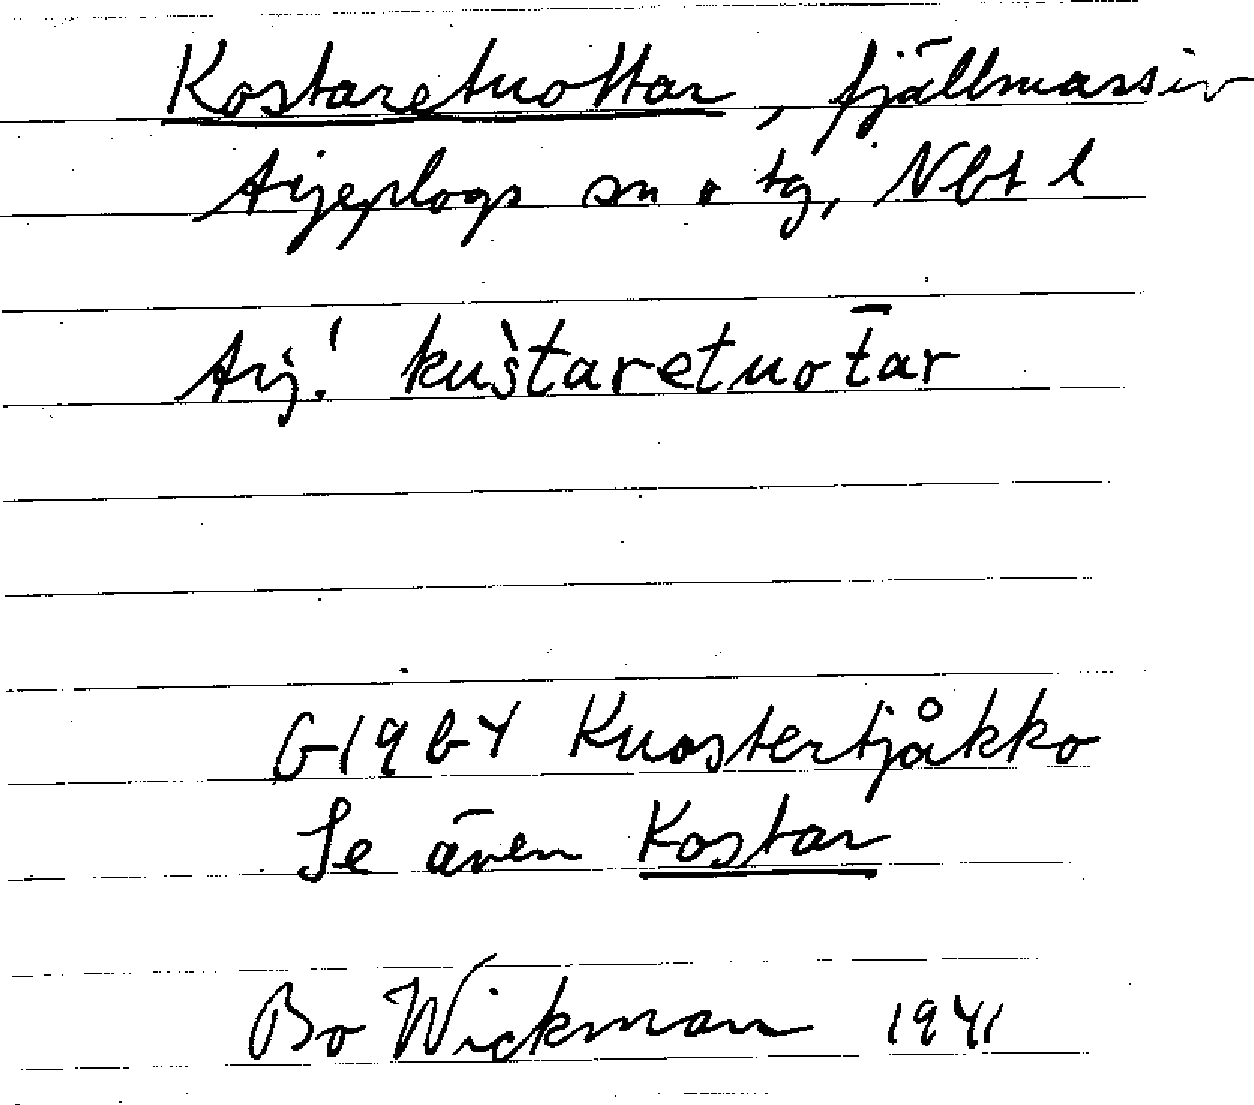 Kostaretuottar, fjällmassiv
Arjeplogs sn o tg, Nbt l
Arj! kuštaretuot̄ar
G 1964 Kuostertjåkko
Se även Kostar
Bo Wickman 1941